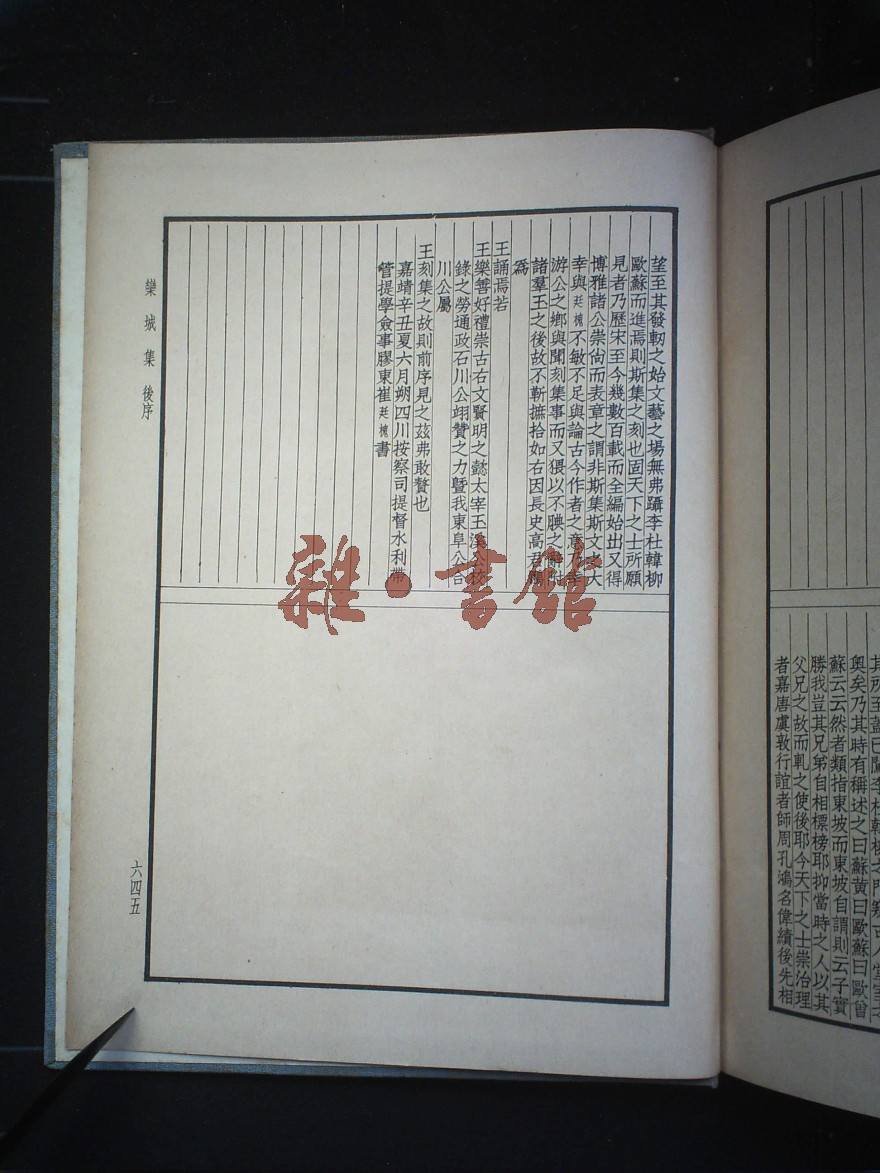 望至其發軔之始文藝之場無弗躡李杜韓柳
歐蘇而進焉則斯集之刻也固天下之士所願
見者乃歷宋至今幾數百載而全編始出又得
博雅諸公崇尚而表章之謂非斯集斯文之大
幸與廷槐不敏不足與論古今作者之意
游公之鄉與聞刻集事而又猥以不腆之辭
諸羣王之後故不靳摭拾如右因長史高君
為
王誦焉若
王樂善好禮崇古右文賢明之懿太宰玉溪公
錄之勞通政石川公翊贊之力曁我東阜公合
川公屬
王刻集之故則前序見之茲弗敢贅也
嘉靖辛丑夏六月朔四川按察司提督水利帶
管提學僉事膠東崔廷槐書
欒城集 後序
六四五
雜·書館
其所至蓋已闖李杜韓柳之門
奧矣乃其時有稱述之曰蘇黃曰歐蘇曰歐曾
蘇云云然者類指東坡而東坡自謂則云子實
勝我豈其兄弟自相標榜耶抑當時之人以其
父兄之故而軋之使後耶今天下之士崇治理
者嘉唐虞敦行誼者師周孔鴻名偉績後先相